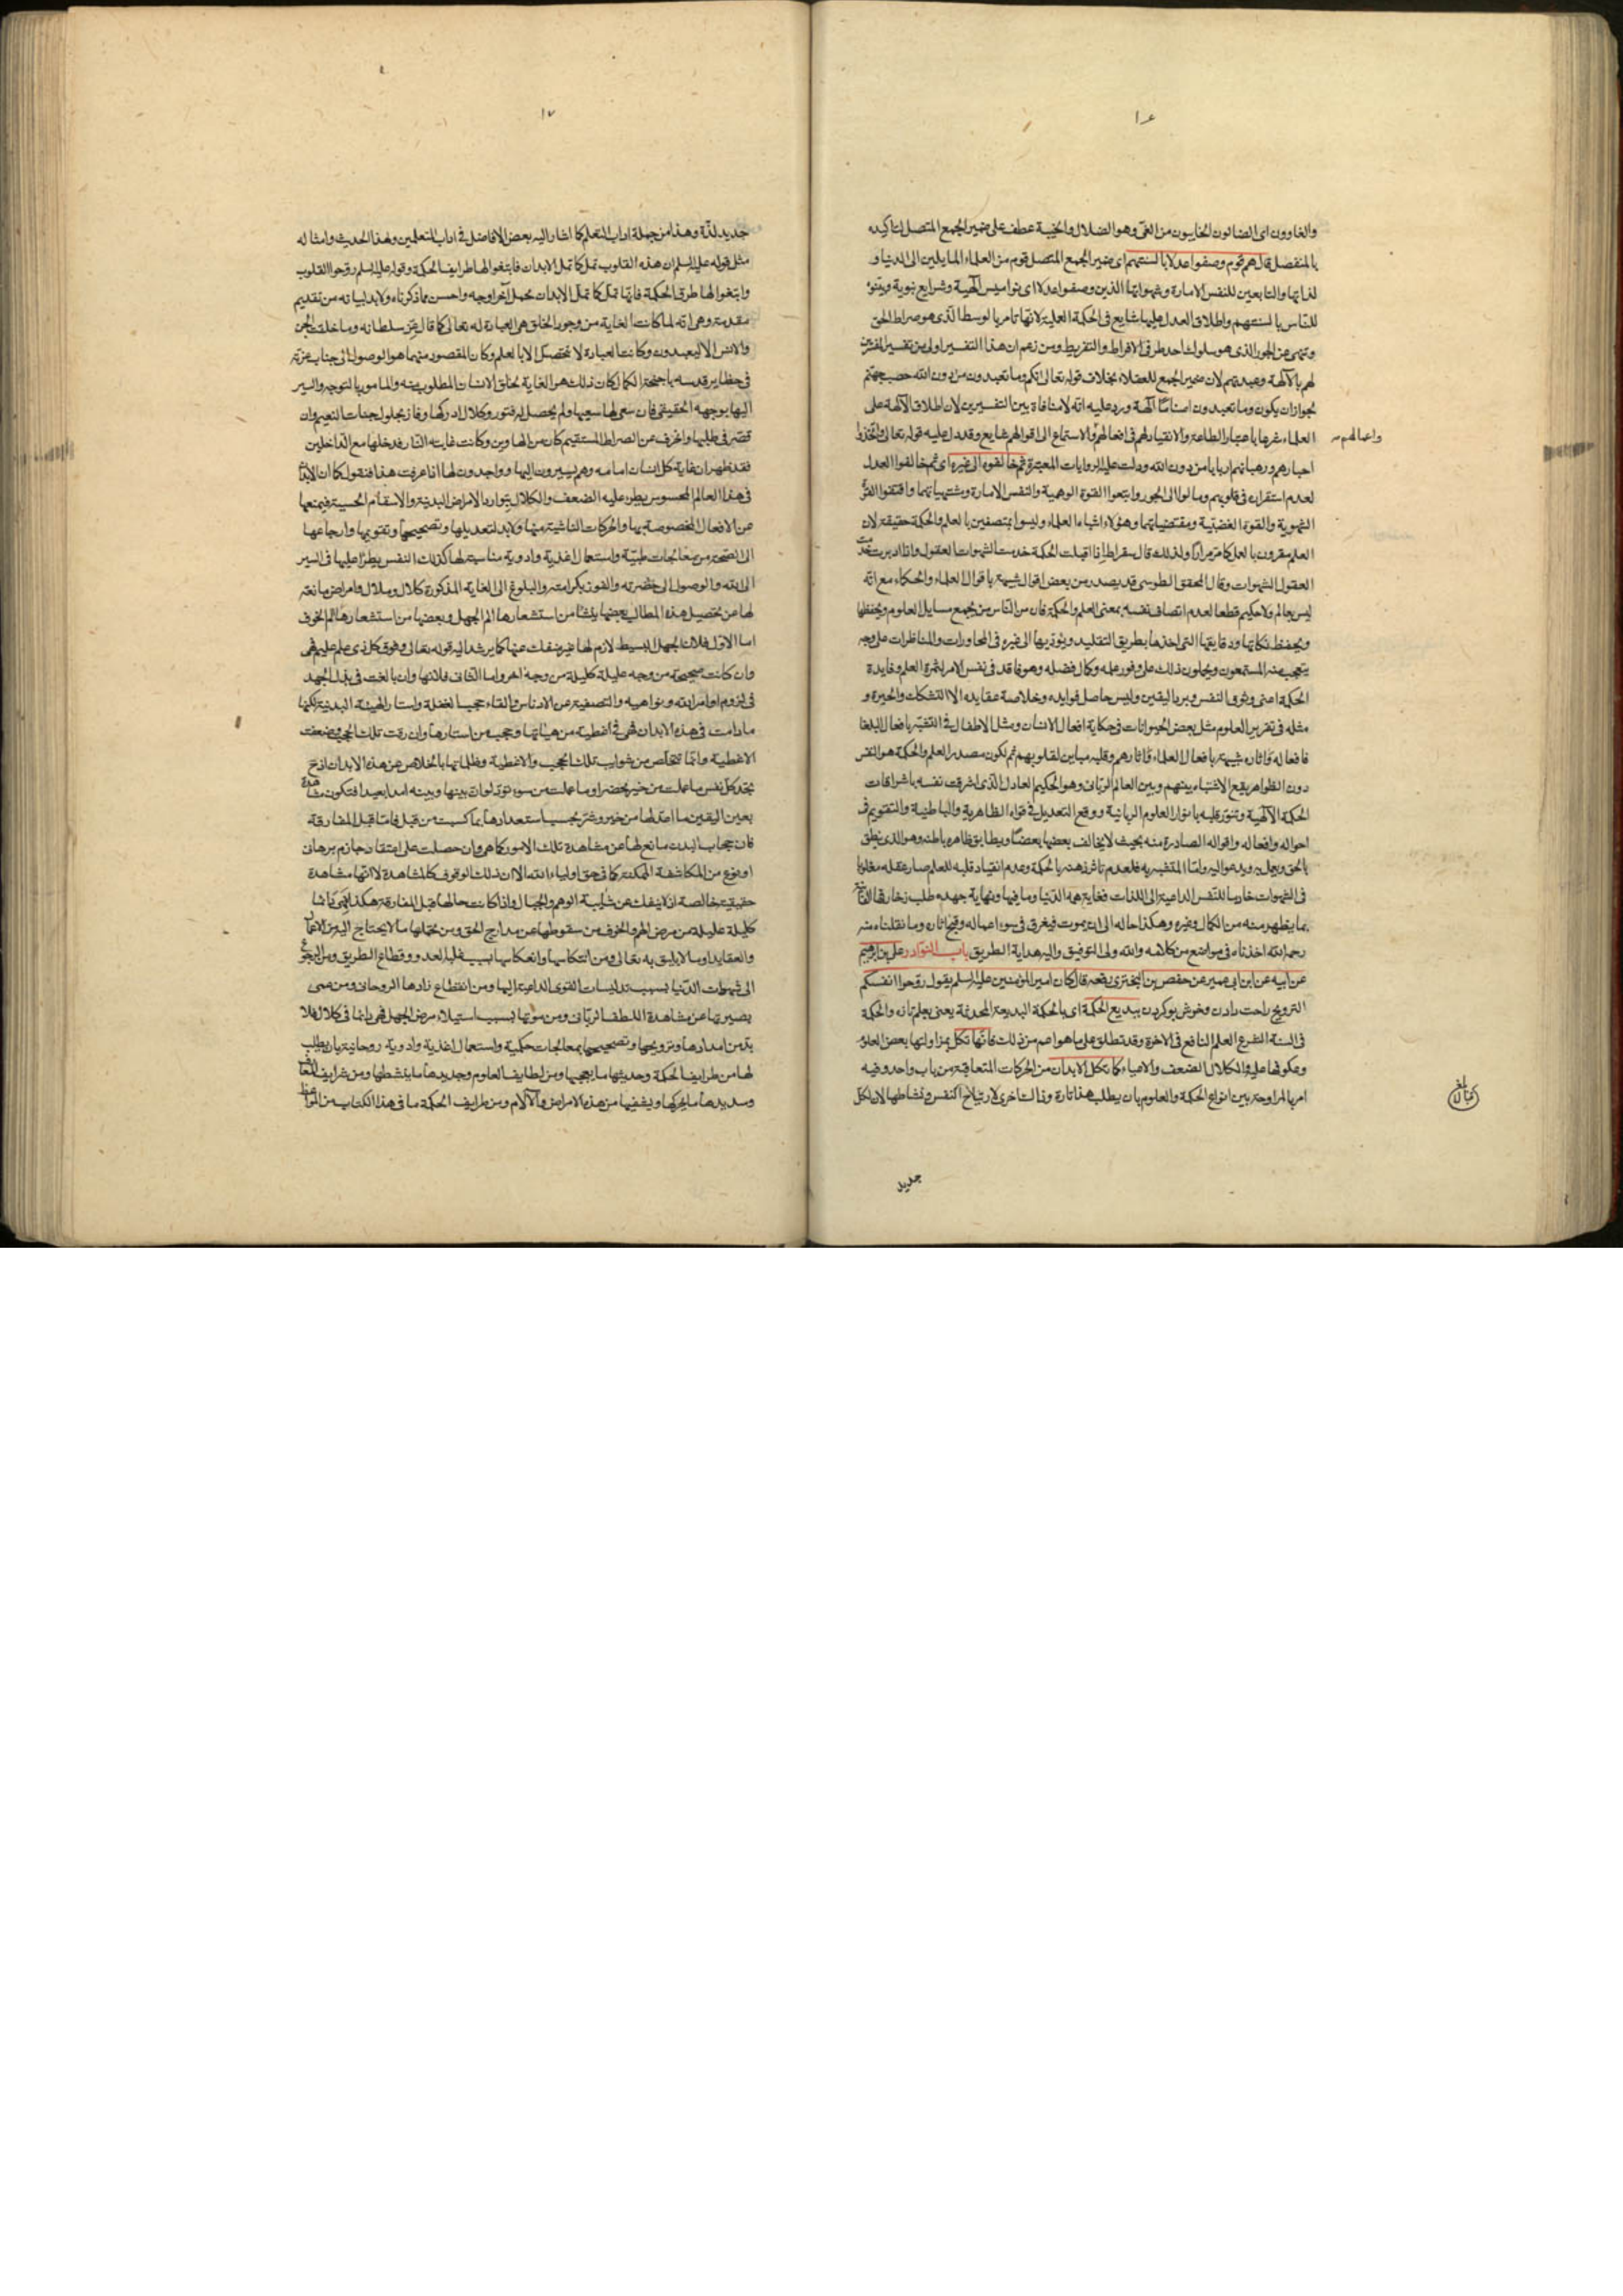 ١٦
والغاوون اى الضالون الخايبون من الغىّ وهو الضلال والخيبة عطف على ضمير الجمع المتصل لتاكيده
بالمنفصل قال هم قوم وصفوا عدلا بالسنتهم اى ضمير الجمع المتصل قوم من العلماء المايلين الى الدنيا و
لذاتها والتابعين للنفس الامارة وشهواتها الذين وصفوا عدلا اى نواميس الهية وشرايع نبوية وبينوه
للناس بالسنتهم واطلاق العدل عليها شايع فى الحكمة العملية لانها تامر بالوسط الذى هو صراط الحق
وتنهى عن الجور الذى هو سلوك احد طرفى الافراط والتفريط ومن زعم ان هذا التفسير اولى من تفسير المفسرين
لهم بالآلهة وعبدتهم لان ضمير الجمع للعقلاء بخلاف قوله تعالى انكم وما تعبدون من دون الله حصب جهنم
لجوازان يكون وما تعبدون اصناما آلهة ورد عليه انه لا منافاة بين التفسيرين لان اطلاق الآلهة على
العلماء غيرها باعتبار الطاعة والانقياد لهم فى افعالهم والاستماع الى اقوالهم شايع وقد دل عليه قوله تعالى واتخذوا
واعمالهم
احبارهم ورهبانهم اربابا من دون الله ودلت عليه الروايات المعتبرة ثم خالفوه الى غيره اى ثم خالفوا العدل
لعدم استقراره فى قلوبهم ومالوا الى الجور واتبعوا القوة الوهمية والنفس الامارة ومشتهياتهما واقتفوا القوة
الشهوية والقوة الغضبية ومقتضياتهما وهؤلاء اشباه العلماء وليسوا بمتصفين بالعلم والحكمة حقيقة لان
العلم مقرون بالعمل كما مر مرارًا ولذلك قال سقراط اذا اقبلت الحكمة خدمت الشهوات العقول واذا ادبرت خدمت
العقول الشهوات وقال المحقق الطوسى قد يصدر من بعض اقوال شبيهة باقوال العلماء والحكماء مع انه
ليس بعالم ولا حكيم قطعا لعدم اتصاف نفسه بمعنى العلم والحكمة فان من الناس من يجمع مسايل العلوم ويحفظها
ويحفظ نكاتها ودقايقها التى اخذها بطريق التقليد ويؤديها الى غيره فى المحاورات والمناظرات على وجه
يتعجب منه المستمعون ويحملون ذلك على وفور علمه وكمال فضله وهو فاقد فى نفس الامر لثمرة العلم وفايدة
الحكمة اعنى وثوق النفس وبرد اليقين وليس حاصل فوايده وخلاصة عقايده الا التشكك والحيرة و
مثله فى تقرير العلوم مثل بعض الحيوانات فى حكاية افعال الانسان ومثل الاطفال فى التشبه بافعال البلغا
فافعاله وآثاره شبيهة بافعال العلماء وآثارهم وقلبه مباين لقلوبهم ثم لكون مصدر العلم والحكمة هو النفس
دون الظواهر يقع الاشتباه بينهم وبين العالم الربانى وهو الحكيم العادل الذى اشرقت نفسه باشراقات
الحكمة الآلهية وتنور قلبه بانوار العلوم الربانية ووقع التعديل فى قواه الظاهرية والباطنية والتقويم فى
احواله وافعاله واقواله الصادرة منه بحيث لا يخالف بعضها بعضا ويطابق ظاهره باطنه وهو الذى ينطق
بالحق ويعمل به ويدعو اليه واما المتشبه به فلعدم تاثر ذهنه بالحكمة وعدم انقياد قلبه للعلم صار عقله مغلوبا
فى الشهوات خادما للنفس الداعية الى اللذات فغاية همه الدنيا وما فيها ونهاية جهده طلب زخارفها الفانية
بما يظهر منه من الكمال وغيره وهكذا حاله الى ان يموت فيغرق فى سوء اعماله وقبح اثاره وما نقلناه منه
رحمه الله اخذناه فى مواضع من كلامه والله ولى التوفيق واليه هداية الطريق باب النوادر على بن ابرهيم
عن ابيه عن ابن ابى عمير عن حفص بن البخترى رفعه قال كان امير المؤمنين عليه السلم يقول روحوا انفسكم
الترويح راحت دادن وخوش بو كردن ببديع الحكمة اى بالحكمة البديعة المحدثة يعنى بعلم تانه والحكمة
فى السنة الشرع العلم النافع فى الاخرة وقد تطلق على ما هو اعم من ذلك فانها تكل بمزاولتها بعض العلوم
وعكوفها عليه والكلال الضعف والاعياء كما تكل الابدان من الحركات المتعاقبة من باب واحد وفيه
امر بالمراوحة بين انواع الحكمة والعلوم بان يطلب هذا تارة وذاك اخرى لارتياح النفس ونشاطها لان لكل
جديد
١٧
جديد لذّة وهذا من جملة اداب التعلم كما اشار اليه بعض الافاضل فى اداب المتعلمين وهذا الحديث وامثاله
مثل قوله عليه السلم ان هذه القلوب تمل كما تمل الابدان فابتغوا لها طرايف الحكمة وقوله عليه السلم روحوا القلوب
وابتغوا لها طرق الحكمة فانها تمل كما تمل الابدان محمل آخر اوجه واحسن مما ذكرناه ولابد لبيانه من تقديم
مقدمة وهى انه لما كانت الغاية من وجود الخلق هى العبادة له تعالى كما قال عز سلطانه وما خلقت الجن
والانس الا ليعبدون وكانت العبادة لا تتحصل الا بالعلم وكان المقصود منهما هو الوصول الى جناب عزته
فى حظاير قدسه باجنحة الكمال كان ذلك هو الغاية لخلق الانسان المطلوب منه والمامور بالتوجه والسير
اليها بوجهه الحقيقى فان سعى لها سعيها ولم يحصل له فتور وكلال ادركها وفاز بحلول جنات النعيم وان
قصر فى طلبها وانحرف عن الصراط المستقيم كان من الهاوين وكانت غايته النار فدخلها مع الداخلين
فقد ظهر ان غاية كل انسان امامه وهم يسيرون اليها وواجدون لها اذا عرفت هذا فنقول كما ان الابدان
فى هذا العالم المحسوس يطرء عليه الضعف والكلال بتوارد الامراض البدنية والاسقام الحسية فيمنعها
عن الافعال المخصوصة بها والحركات الناشية منها ولابد لتعديلها وتصحيحها وتقويمها وارجاعها
الى الصحة من معالجات طبية واستعمال اغذية وادوية مناسبة لها كذلك النفس يطرأ عليها فى السير
الى الله والوصول الى حضرته والفوز بكرامته والبلوغ الى الغاية المذكورة كلال وملال وامراض مانعة
لها عن تحصيل هذه المطالب بعضها ينشا من استشعارها الم الجهل وبعضها من استشعارها الم الخوف
اما الاول فلان الجهل البسيط لازم لها غير منفك عنها كما يرشد اليه قوله تعالى وفوق كل ذى علم عليم فهى
وان كانت صحيحة من وجه عليلة كليلة من وجه اخر واما الثانى فلانها وان بالغت فى بذل الجهد
فى لزوم اوامر الله ونواهيه والتصفية عن الادناس والقاء حجب الغفلة واستار الهيئة البدنية لكنها
مادامت فى هذه الابدان فهى فى اغطية من هيئاتها وحجب من استارها وان رقت تلك الحجب وضعفت
الاغطية وانما تتخلص من شوايب تلك الحجب والاغطية وظلماتها بالخلاص عن هذه الابدان اذ ح
تجد كل نفس ما عملت من خير محضرا وما عملت من سوء تود لو ان بينها وبينه امدا بعيدا فتكون مشاهدة
بعين اليقين ما اعد لها من خير وشر بحسب استعدادها بما كسبت من قبل فاما قبل المفارقة
فان حجاب البدن مانع لها عن مشاهدة تلك الامور كما هى وان حصلت على اعتقاد جازم برهانى
او نوع من المكاشفة الممكنة كما فى حق اولياء الله الا ان ذلك الوقوف كالمشاهدة لا انها مشاهدة
حقيقية خالصة اذ لا ينفك عن شايبة الوهم والخيال واذا كانت حالها قبل المفارقة هكذا فهى دائما
كليلة عليلة من مرض الهم والخوف من سقوطها عن مدارج الحق ومن تحملها ما لا يحتاج اليه من الاعمال
والعقايد او ما لا يليق به تعالى ومن انتكاسها وانعكاسها بسبب غلبة العدو وقطاع الطريق ومن الرجوع
الى شهوات الدنيا بسبب تدليسات القوى الداعية اليها ومن انقطاع زادها الروحانى ومن عمى
بصيرتها عن مشاهدة اللطف الربانى ومن موتها بسبب استيلاء مرض الجهل فهى دائما فى كلال فلا
بد من امدادها وترويحها وتصحيحها بمعالجات حكمية واستعمال اغذية وادوية روحانية بان يطلب
لها من طرايف الحكمة وحديثها ما يبهجها ومن لطايف العلوم وجديدها ما ينشطها ومن شرايف المعارف
وسديدها ما يحركها ويشفيها من هذه الامراض والآلام ومن طرايف الحكمة ما فى هذا الكتاب من المواعظ